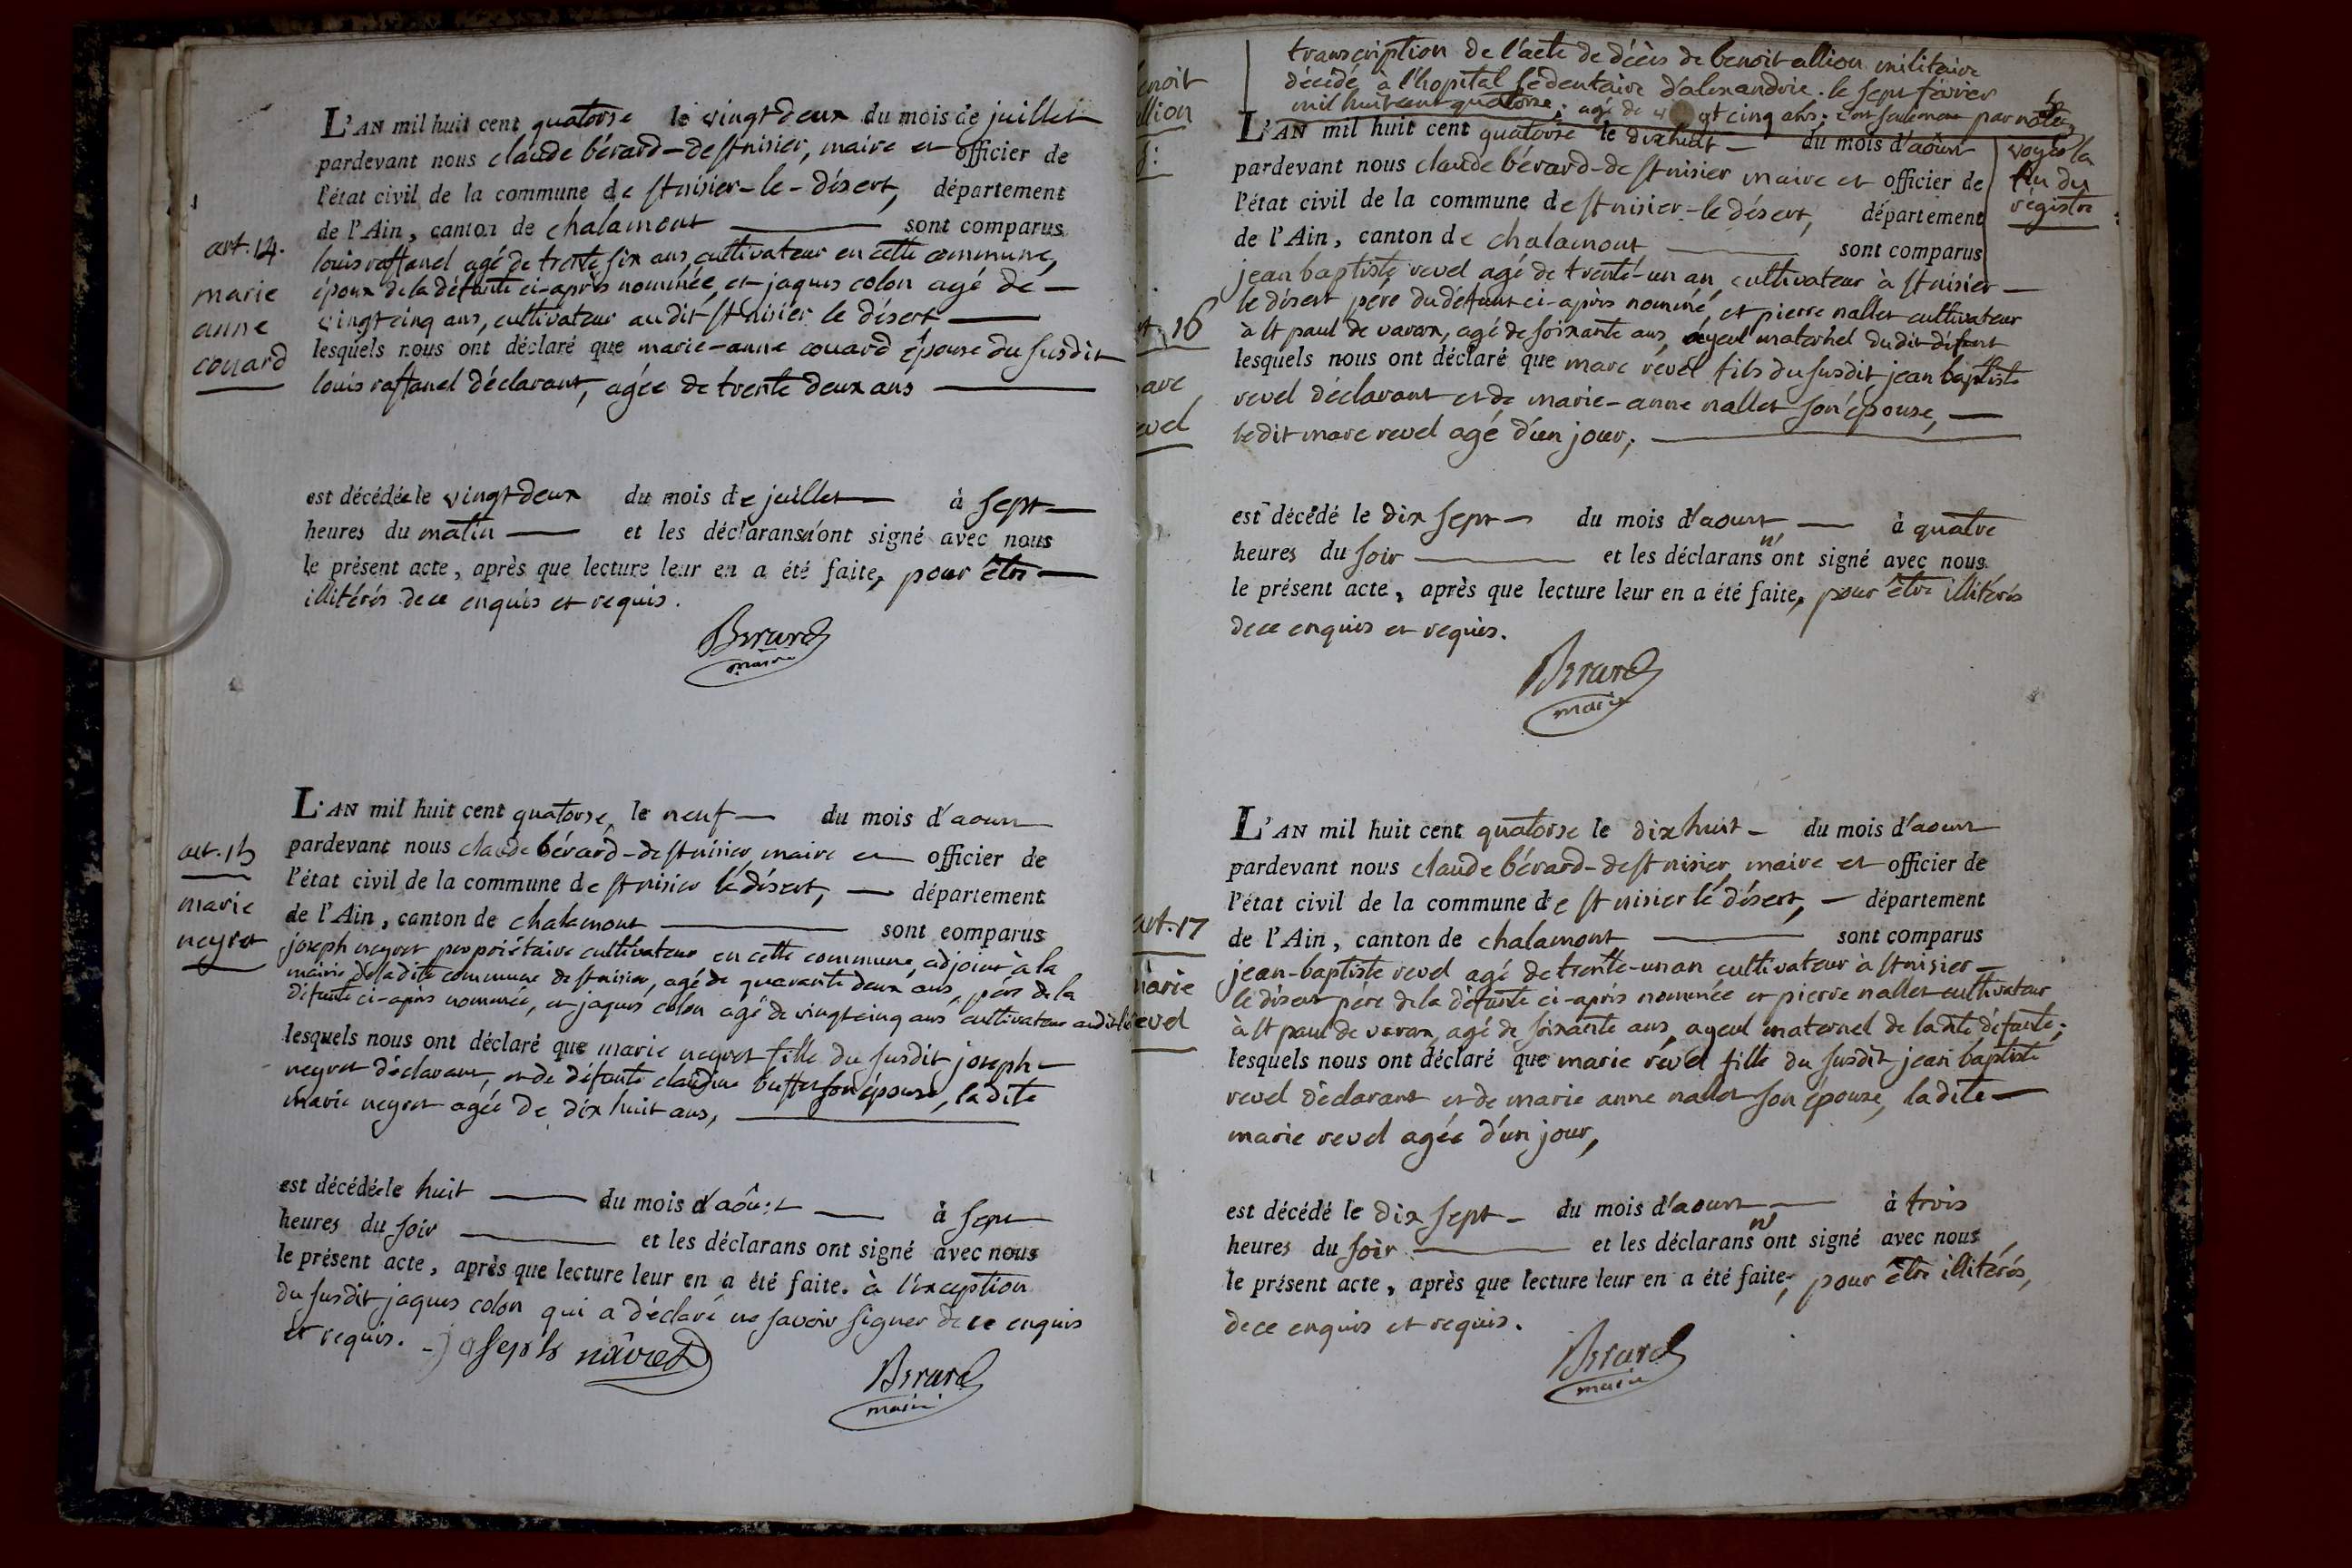 art. 14.
marie
anne
couard
L'AN mil huit cent quatorse le vingt deux du mois de juillet
pardevant nous claude bérard-de st nisier, maire et officier de
l'état civil de la commune de st nisier-le-désert, département
de l'Ain, canton de chalamont sont comparus
louis raffanel agé de trente six ans, cultivateur en cette commune,
époux de la défunte ci-après nommée, et jaques colon agé de
vingt cinq ans, cultivateur au dit st nisier le désert
lesquels nous ont déclaré que marie-anne couard épouse du susdit
louis raffanel déclarant, agée de trente deux ans
est décédée le vingt deux du mois de juillet à sept
heures du matin et les déclarans n'ont signé avec nous
le présent acte, après que lecture leur en a été faite, pour être
illitérés de ce enquis et requis.
Berard
maire
art. 15
marie
neyret
L'AN mil huit cent quatorse, le neuf du mois d'aoust
pardevant nous claude bérard-de st nisier, maire et officier de
l'état civil de la commune de st nisier le désert, département
de l'Ain, canton de chalamont sont comparus
joseph neyret propriétaire cultivateur en cette commune, adjoint à la
mairie de la dite commune de st nisier, agé de quarante deux ans, père de la
défunte ci-après nommée, et jaques colon agé de vingt cinq ans cultivateur audit lieu
lesquels nous ont déclaré que marie neyret fille du susdit joseph
neyret déclarant, et de défunte claudine buffet son épouse, la dite
marie neyret agée de dix huit ans,
est décédée le huit du mois d'août à sept
heures du soir et les déclarans ont signé avec nous
le présent acte, après que lecture leur en a été faite. à l'exception
du susdit jaques colon qui a déclaré ne savoir signer de ce enquis
et requis. Joseph nâvret
Berard
maire
enoit
llion
transcription de l'acte de décès de benoit allion militaire
décédé à l'hopital sédentaire d'alexandrie. le sept février
mil huit cent quatorse; agé de vingt cinq ans; c'est seulement par note
voyez la
fin du
registre
t. 16
arc
evel
L'AN mil huit cent quatorse le dix huit du mois d'aôust
pardevant nous claude bérard-de st nisier maire et officier de
l'état civil de la commune de st nisier-le désert, département
de l'Ain, canton de chalamont sont comparus
jean baptiste revel agé de trente-un an, cultivateur à st nisier
le désert père du défunt ci-après nommé, et pierre nallet cultivateur
à st paul de varax, agé de soixante ans, ayeul maternel du dit défunt
lesquels nous ont déclaré que marc révél fils du susdit jean baptiste
revel déclarant et de marie-anne nallet son épouse,
le dit marc revel agé d'un jour;
est décédé le dix sept du mois d'aoust à quatre
heures du soir et les déclarans n'ont signé avec nous
le présent acte, après que lecture leur en a été faite, pour être illitérés
de ce enquis et requis.
Berard
maire
art. 17
marie
revel
L'AN mil huit cent quatorse le dix huit du mois d'aoust
pardevant nous claude bérard-de st nisier, maire et officier de
l'état civil de la commune de st nisier lé désert, département
de l'Ain, canton de chalamont sont comparus
jean-baptiste revel agé de trente-un an cultivateur à st nisier
le désert père de la défunte ci-après nommée et pierre nallet cultivateur
à st paul de varax, agé de soixante ans, ayeul maternel de la dite défunte;
lesquels nous ont déclaré que marie révél fille du susdit jean baptiste
revel déclarant et de marie anne nallet son épouse, la dite
marie revel agée d'un jour,
est décédé le dix sept du mois d'aoust à trois
heures du soir et les déclarans n'ont signé avec nous
le présent acte, après que lecture leur en a été faite, pour être illitérés,
de ce enquis et requis.
Berard
maire